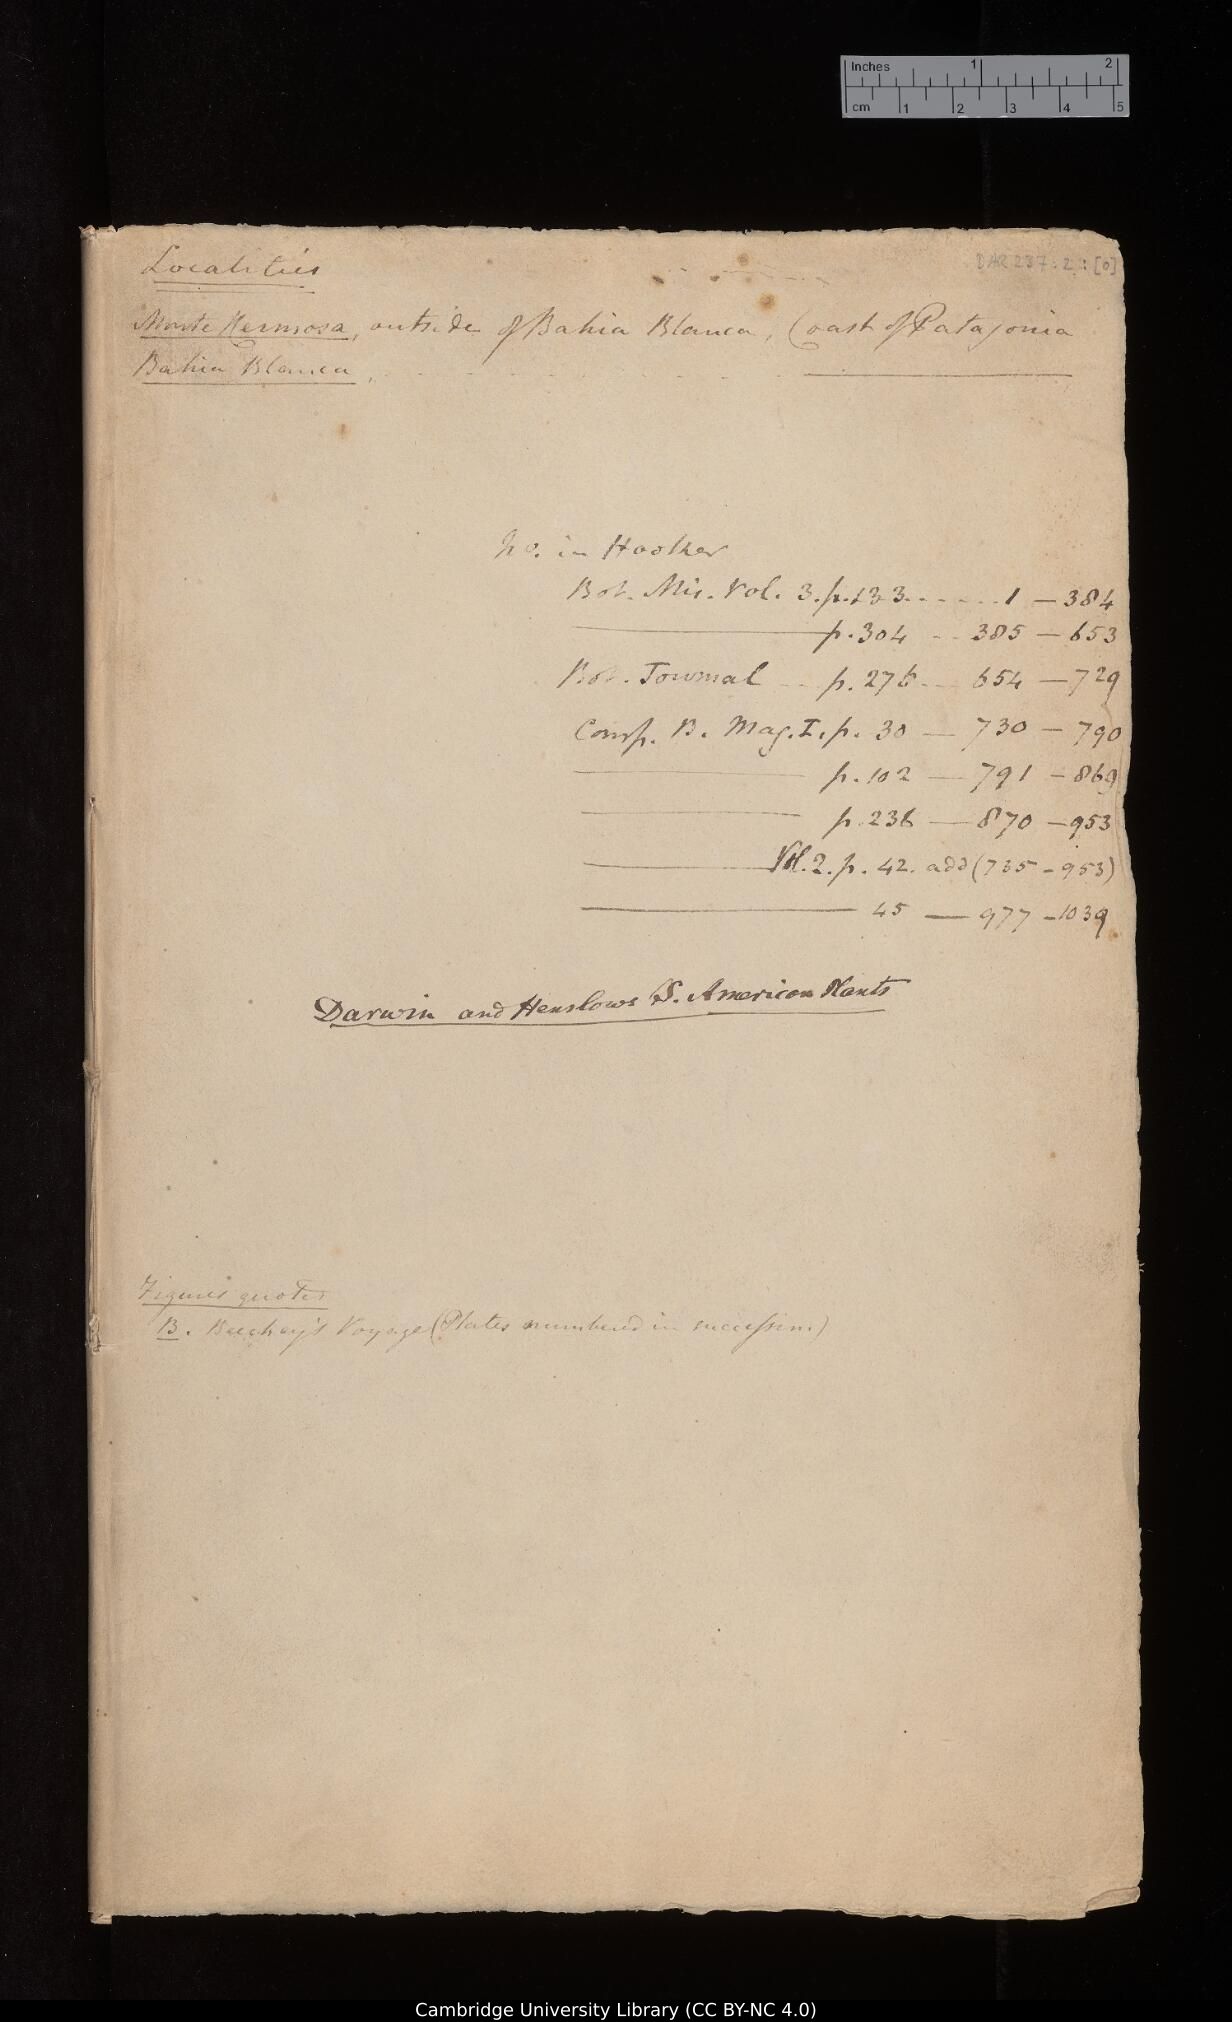 Inches 1 2
cm 1 2 3 4 5
DAR 237:2:[0]
Localities
Monte Hermosa, outside of Bahia Blanca, Coast of Patagonia
Bahia Blanca,
No. in Hooker
Bot. Mis. Vol. 3. p. 133 1 — 384
p. 304 385 — 653
Bot. Journal p. 276 654 — 729
Comp. B. Mag. I. p. 30 — 730 — 790
p. 102 — 791 — 869
p. 236 — 870 — 953
Vol. 2. p. 42. add (735 - 953)
45 — 977 - 1039
Darwin and Henslows S. American Plants
Figures quoted
B. Beechey's Voyage (Plates numbered in succession)
Cambridge University Library (CC BY-NC 4.0)